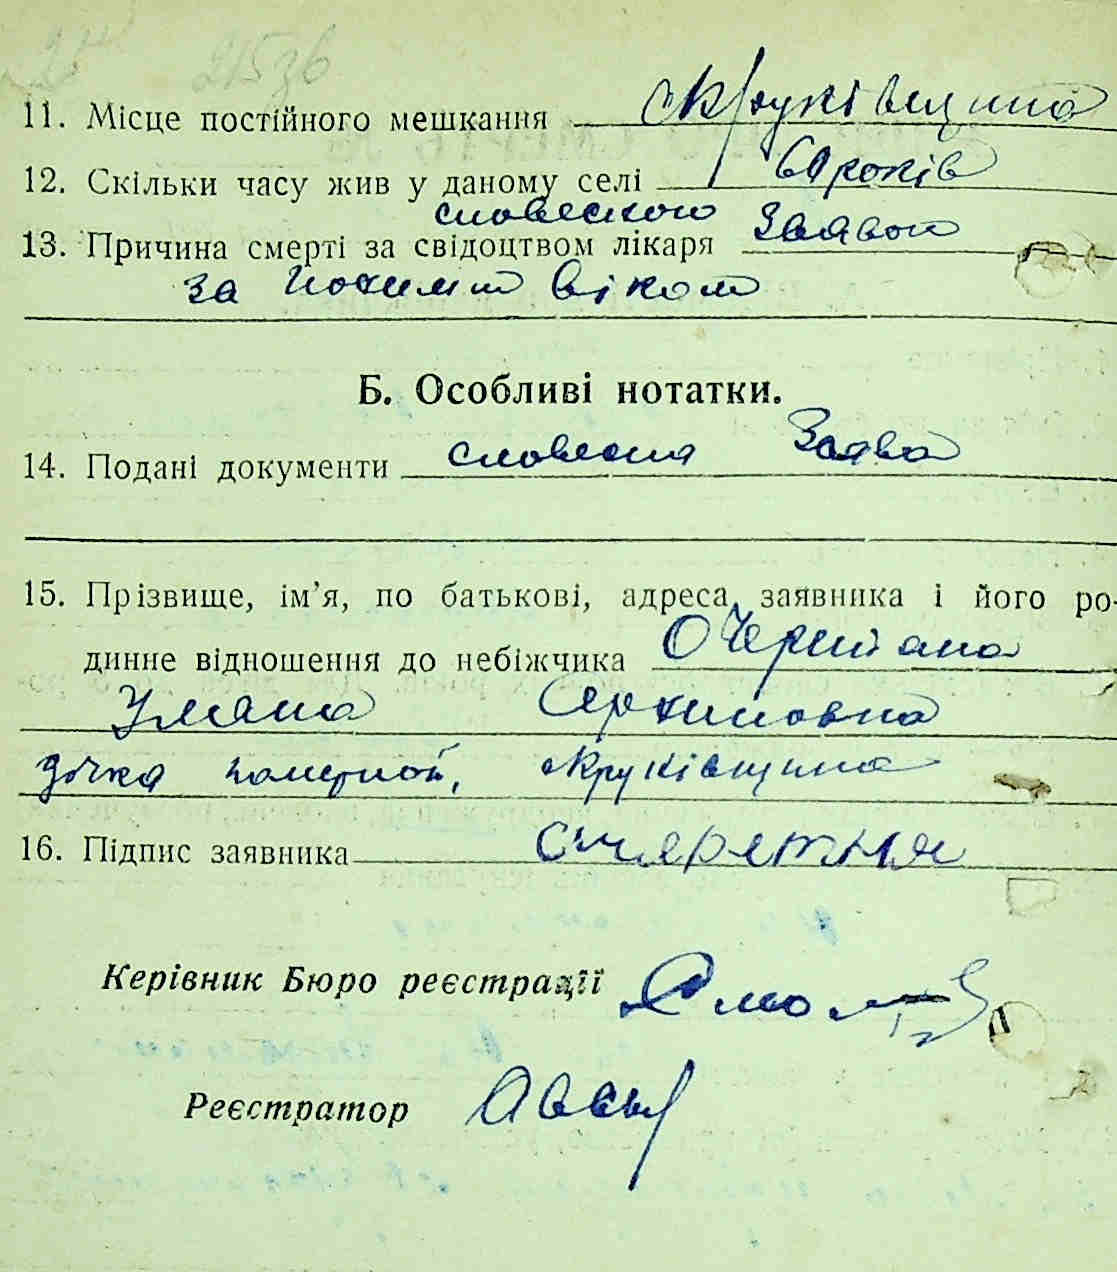 215зв
11. Місце постійного мешкання с Круківщина
12. Скільки часу жив у даному селі років
словесного
13. Причина смерті за свідоцтвом лікаря Заявою
за похилим віком
Б. Особливі нотатки.
14. Подані документи словесна Заява
15. Прізвище, ім’я, по батькові, адреса заявника і його ро-
динне відношення до небіжчика
Уляна Архиповна
дочка померлой, с Круківщина
16. Підпис заявника
Керівник Бюро реєстрації
Реєстратор